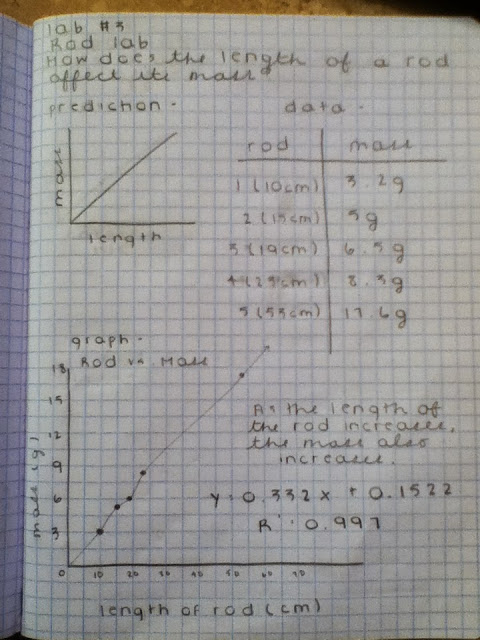 lab #3
Rod lab
How does the length of a rod
affect its mass?
prediction -
mass
length
data -
rod mass
1 (10cm) 3.2g
2 (15cm) 5g
3 (19cm) 6.5g
4 (25cm) 8.3g
5 (53cm) 17.6g
graph -
Rod vs. Mass
mass (g)
18
15
12
9
6
3
0 10 20 30 40 50 60 70
length of rod (cm)
As the length of
the rod increases,
the mass also
increases.
y = 0.332x + 0.1522
R² = 0.997